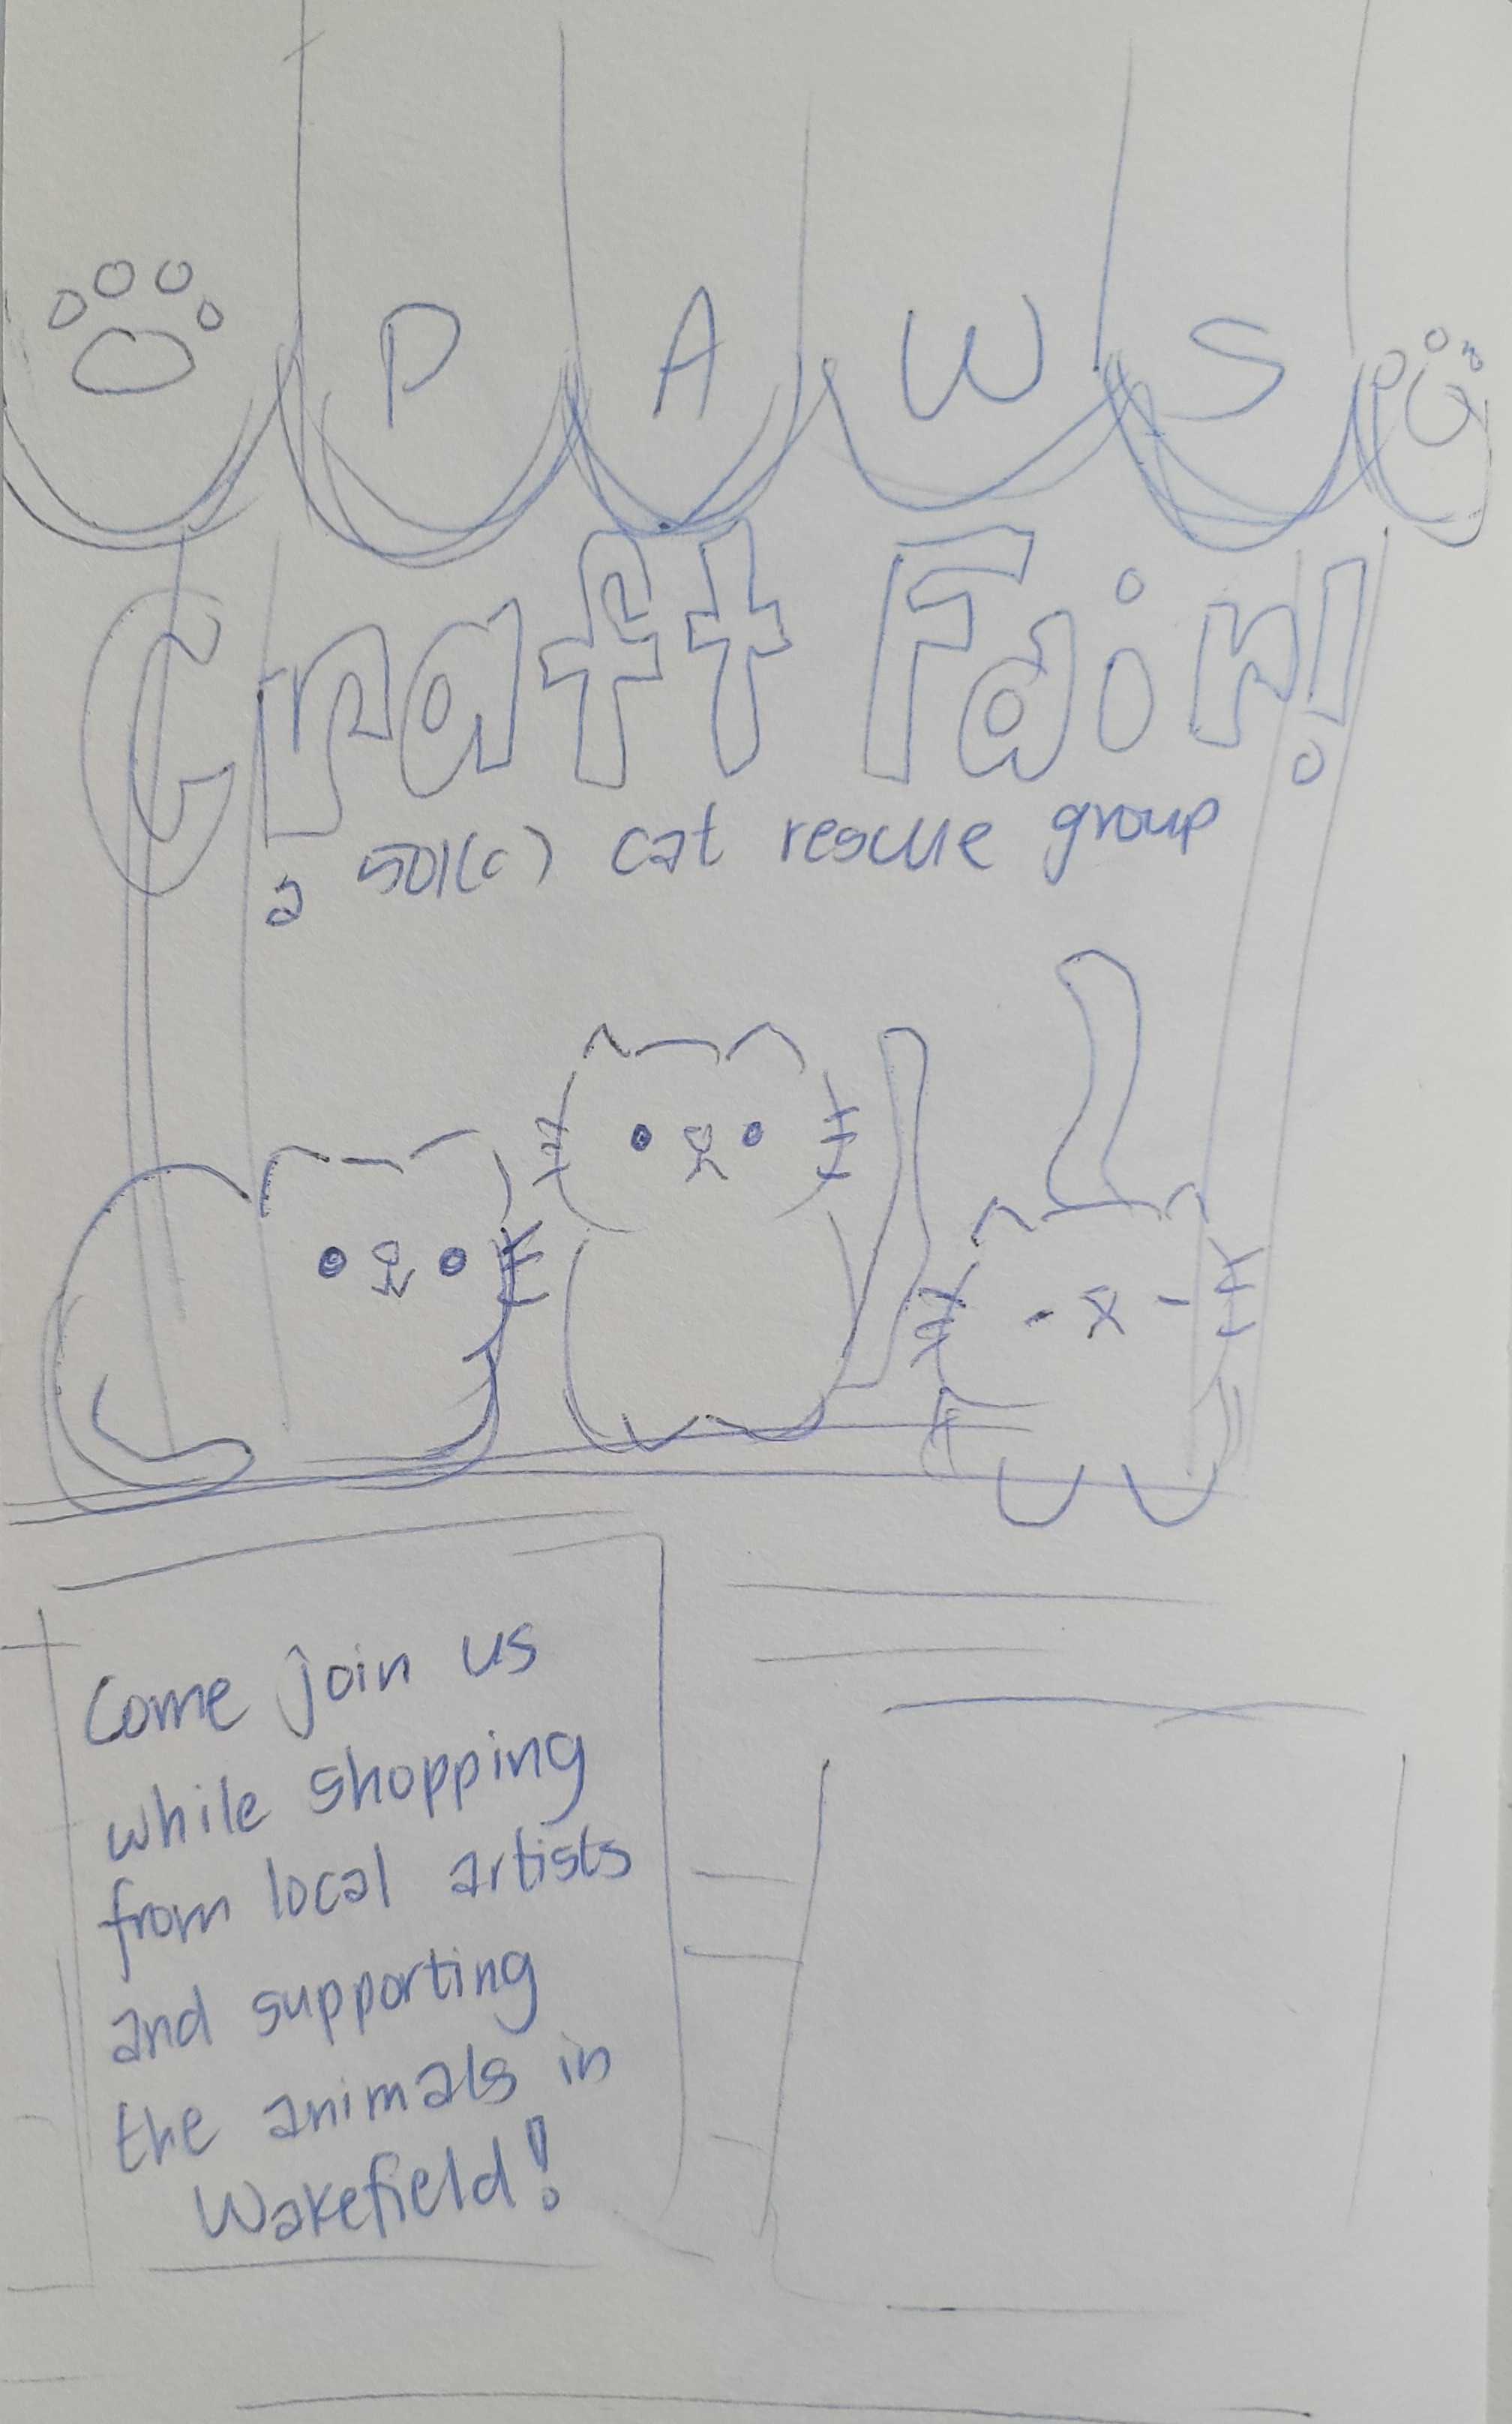 PAWS
Craft Fair!
a 501(c) cat rescue group
Come join us
while shopping
from local artists
and supporting
the animals in
Wakefield!